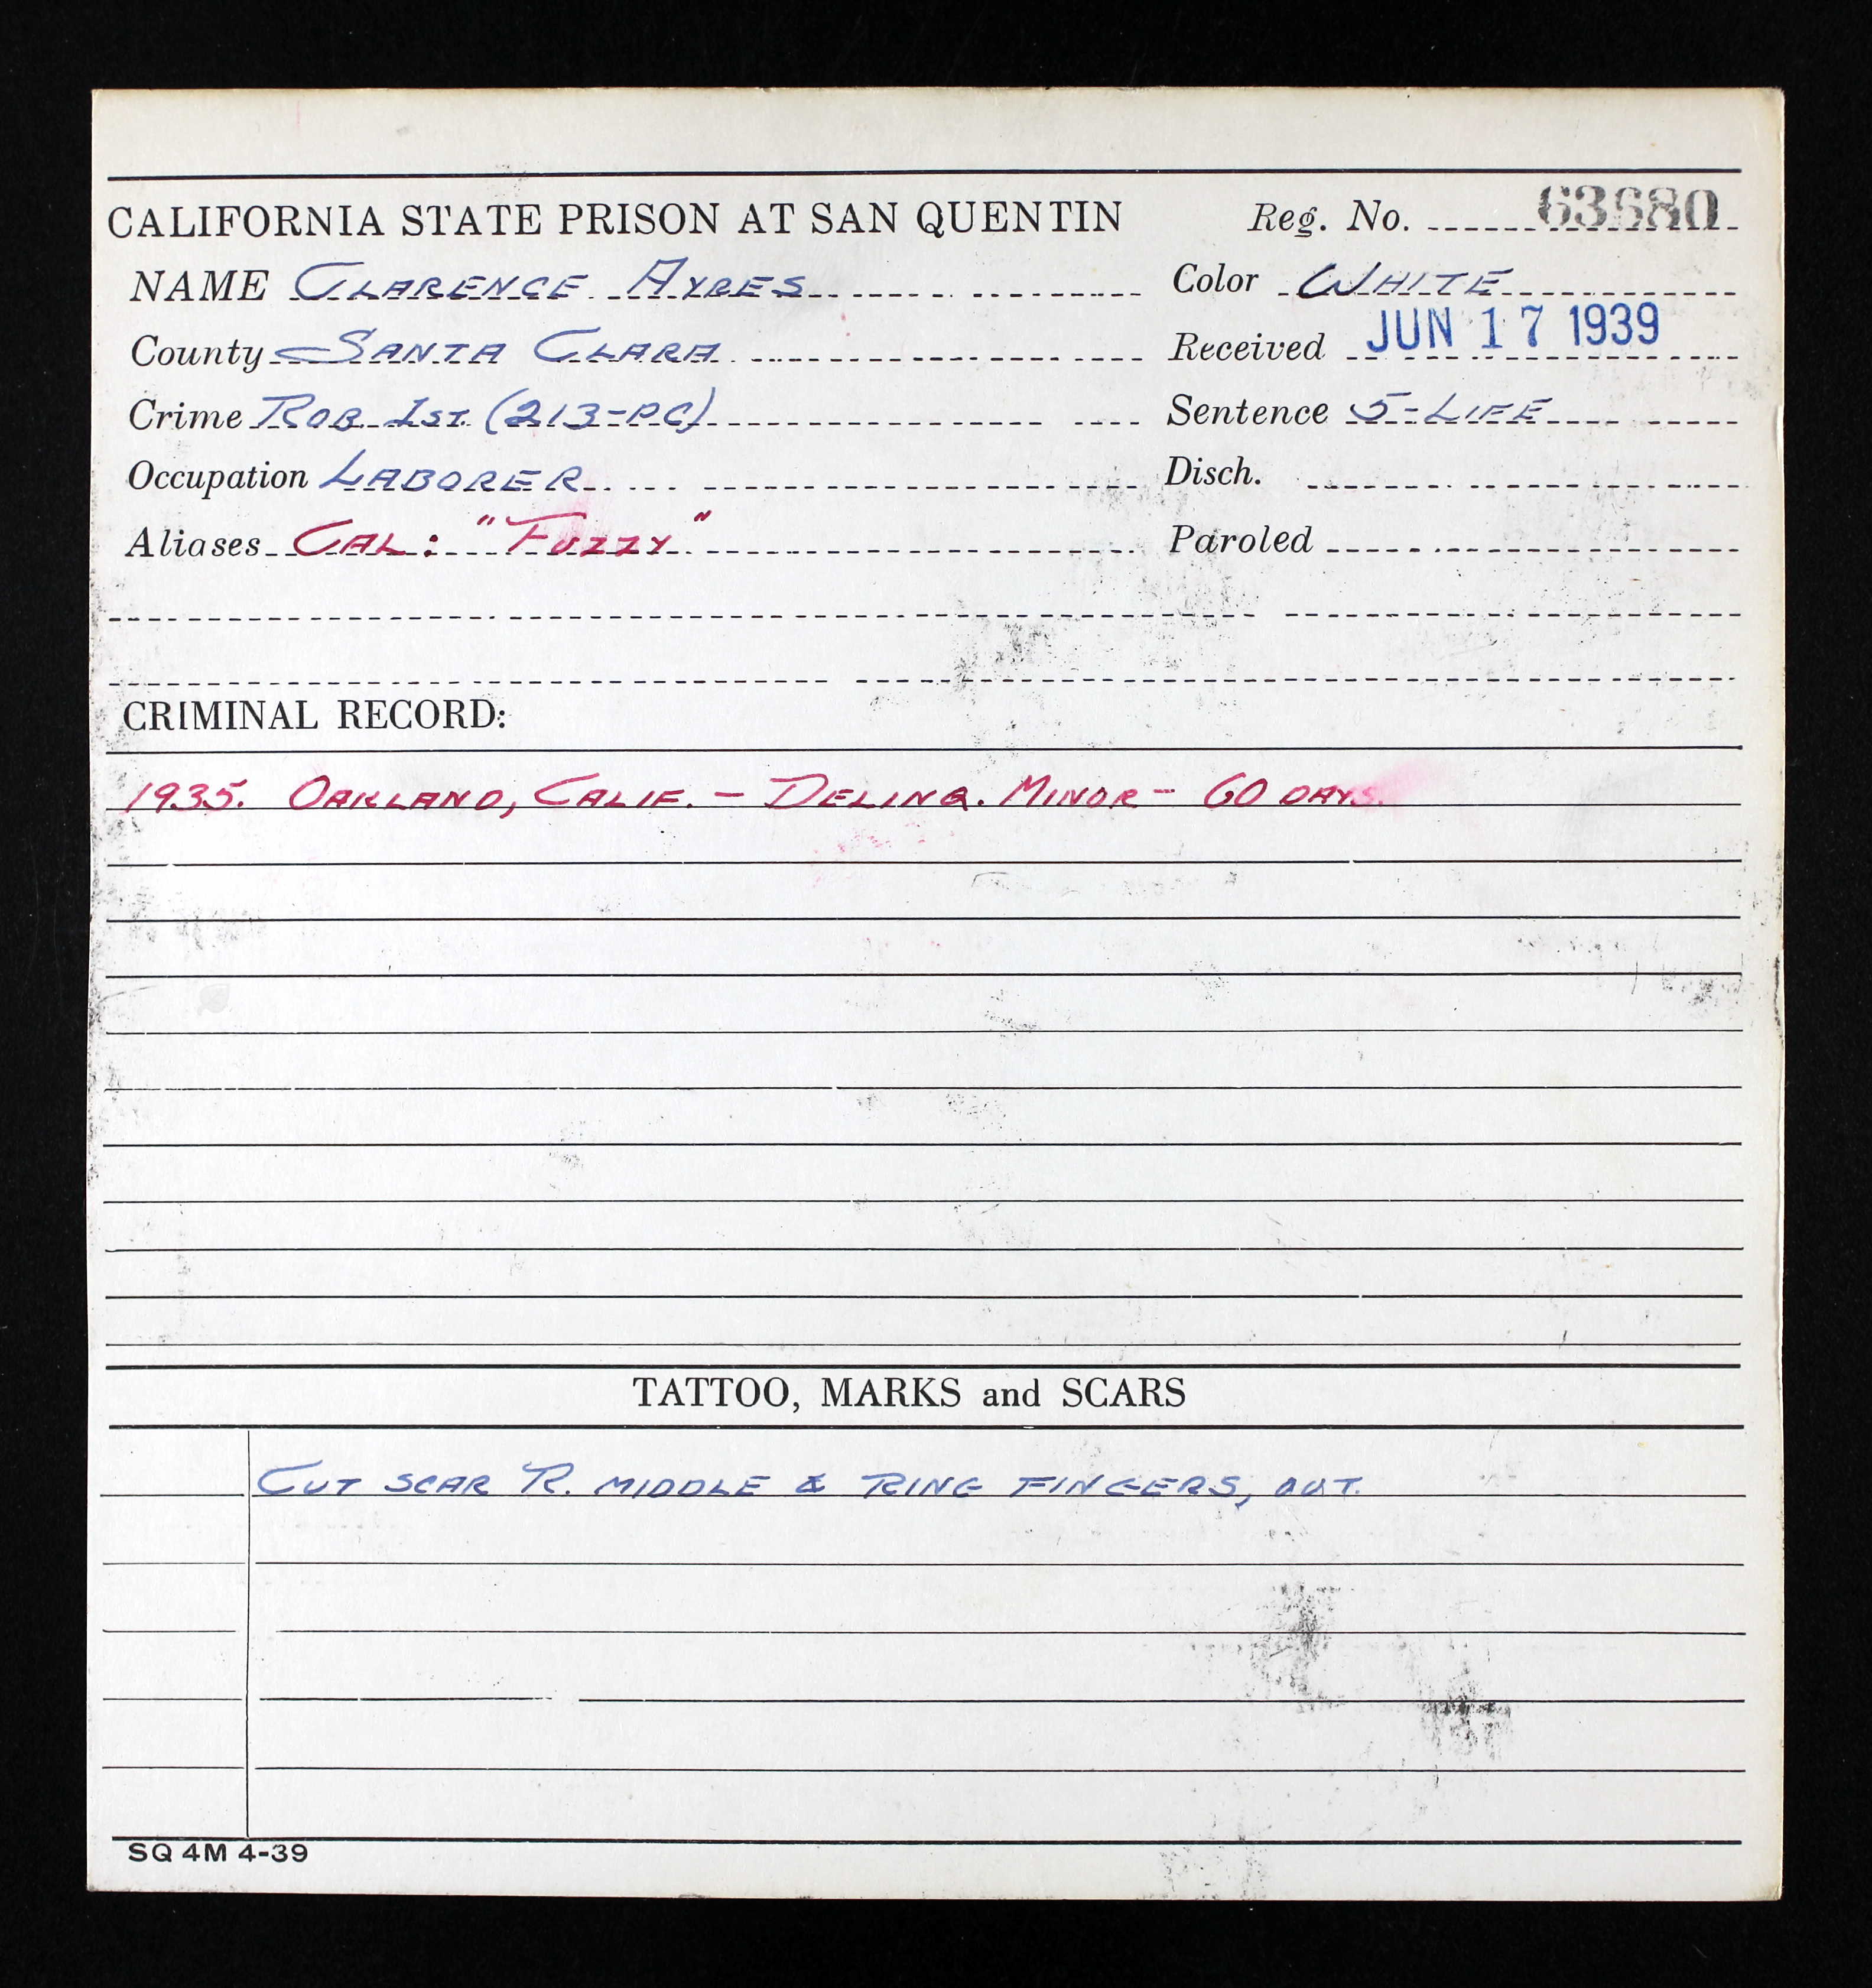 CALIFORNIA STATE PRISON AT SAN QUENTIN Reg. No. 63680
NAME CLARENCE AYRES Color WHITE
County SANTA CLARA Received JUN 17 1939
Crime ROB. 1ST. (213-PC) Sentence 5-LIFE
Occupation LABORER Disch.
Aliases CAL: "FUZZY" Paroled
CRIMINAL RECORD:
1935. OAKLAND, CALIF. - DELINQ. MINOR - 60 DAYS.
TATTOO, MARKS and SCARS
CUT SCAR R. MIDDLE & RING FINGERS, OUT.
SQ 4M 4-39